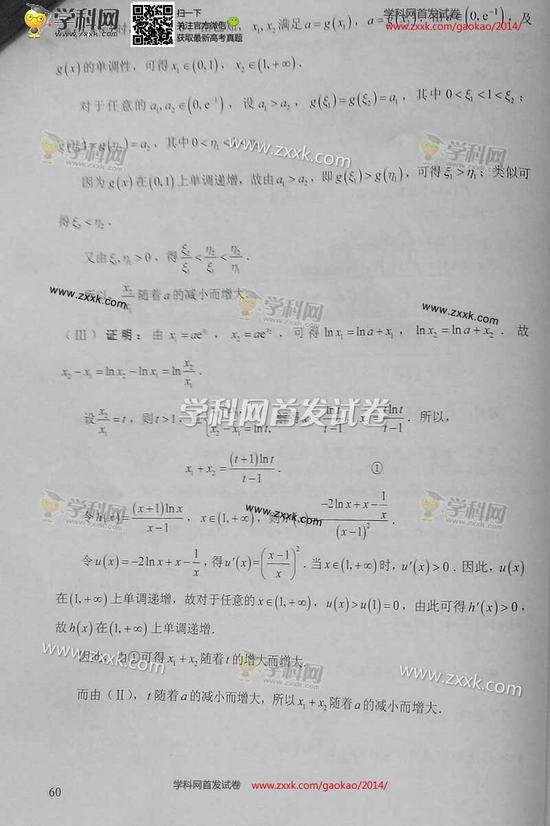 学科网
www.zxxk.com
扫一扫
关注官方微信
获取最新高考真题
学科网首发试卷
www.zxxk.com/gaokao/2014/
x₁, x₂ 满足 a = g(x₁), a = g(x₂). 由 a∈(0, e⁻¹), 及
g(x) 的单调性, 可得 x₁∈(0,1), x₂∈(1,+∞).
对于任意的 a₁, a₂∈(0, e⁻¹), 设 a₁ > a₂, g(ξ₁) = g(ξ₂) = a₁, 其中 0 < ξ₁ < 1 < ξ₂;
g(η₁) = g(η₂) = a₂, 其中 0 < η₁ <
学科网
www.zxxk.com
因为 g(x) 在 (0,1) 上单调递增, 故由 a₁ > a₂, 即 g(ξ₁) > g(η₁), 可得 ξ₁ > η₁; 类似可
得 ξ₂ < η₂.
又由 ξ₁, η₁ > 0, 得 ξ₂/ξ₁ < η₂/ξ₁ < η₂/η₁.
所以, x₂/x₁ 随着 a 的减小而增大.
www.zxxk.com
学科网
www.zxxk.com
(Ⅲ) 证明: 由 x₁ = ae^(x₁), x₂ = ae^(x₂), 可得 ln x₁ = ln a + x₁, ln x₂ = ln a + x₂. 故
x₂ − x₁ = ln x₂ − ln x₁ = ln x₂/x₁.
学科网首发试卷
设 x₂/x₁ = t, 则 t > 1, x₂ − x₁ = ln t, ln t/(t−1), t ln t/(t−1). 所以,
x₁ + x₂ = (t+1)ln t/(t−1). ①
学科网
www.zxxk.com
学科网
令 h(x) = (x+1)ln x/(x−1), x∈(1,+∞), 则 (−2ln x + x − 1/x)/(x−1)².
令 u(x) = −2ln x + x − 1/x, 得 u′(x) = ((x−1)/x)². 当 x∈(1,+∞) 时, u′(x) > 0. 因此, u(x)
在 (1,+∞) 上单调递增, 故对于任意的 x∈(1,+∞), u(x) > u(1) = 0, 由此可得 h′(x) > 0,
故 h(x) 在 (1,+∞) 上单调递增.
因此, 由①可得 x₁ + x₂ 随着 t 的增大而增大.
学科网
www.zxxk.com
学科网
www.zxxk.com
而由 (Ⅱ), t 随着 a 的减小而增大, 所以 x₁ + x₂ 随着 a 的减小而增大.
学科网首发试卷
www.zxxk.com/gaokao/2014/
60